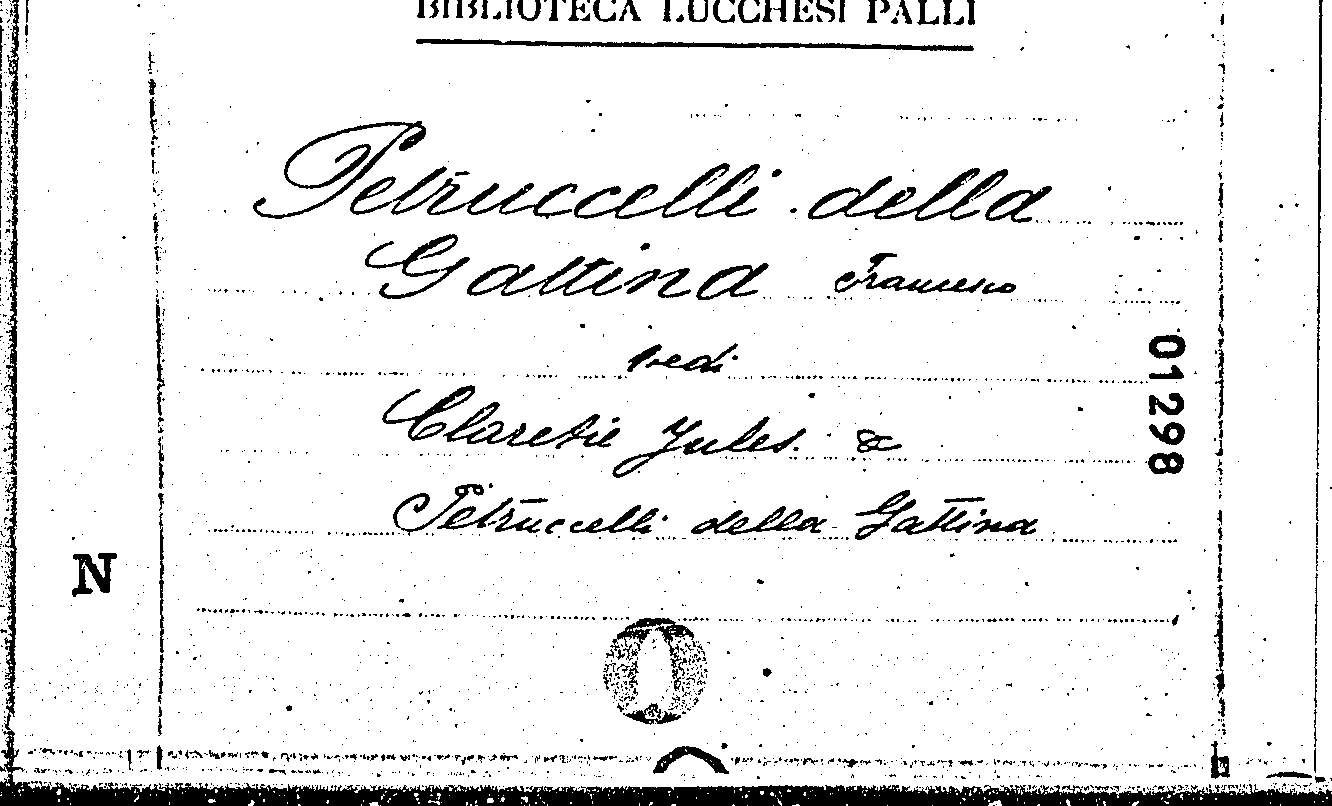 BIBLIOTECA LUCCHESI PALLI
Petruccelli della
Gattina Francesco
vedi
Claretie Jules. &
Petruccelli della Gattina
01298
N